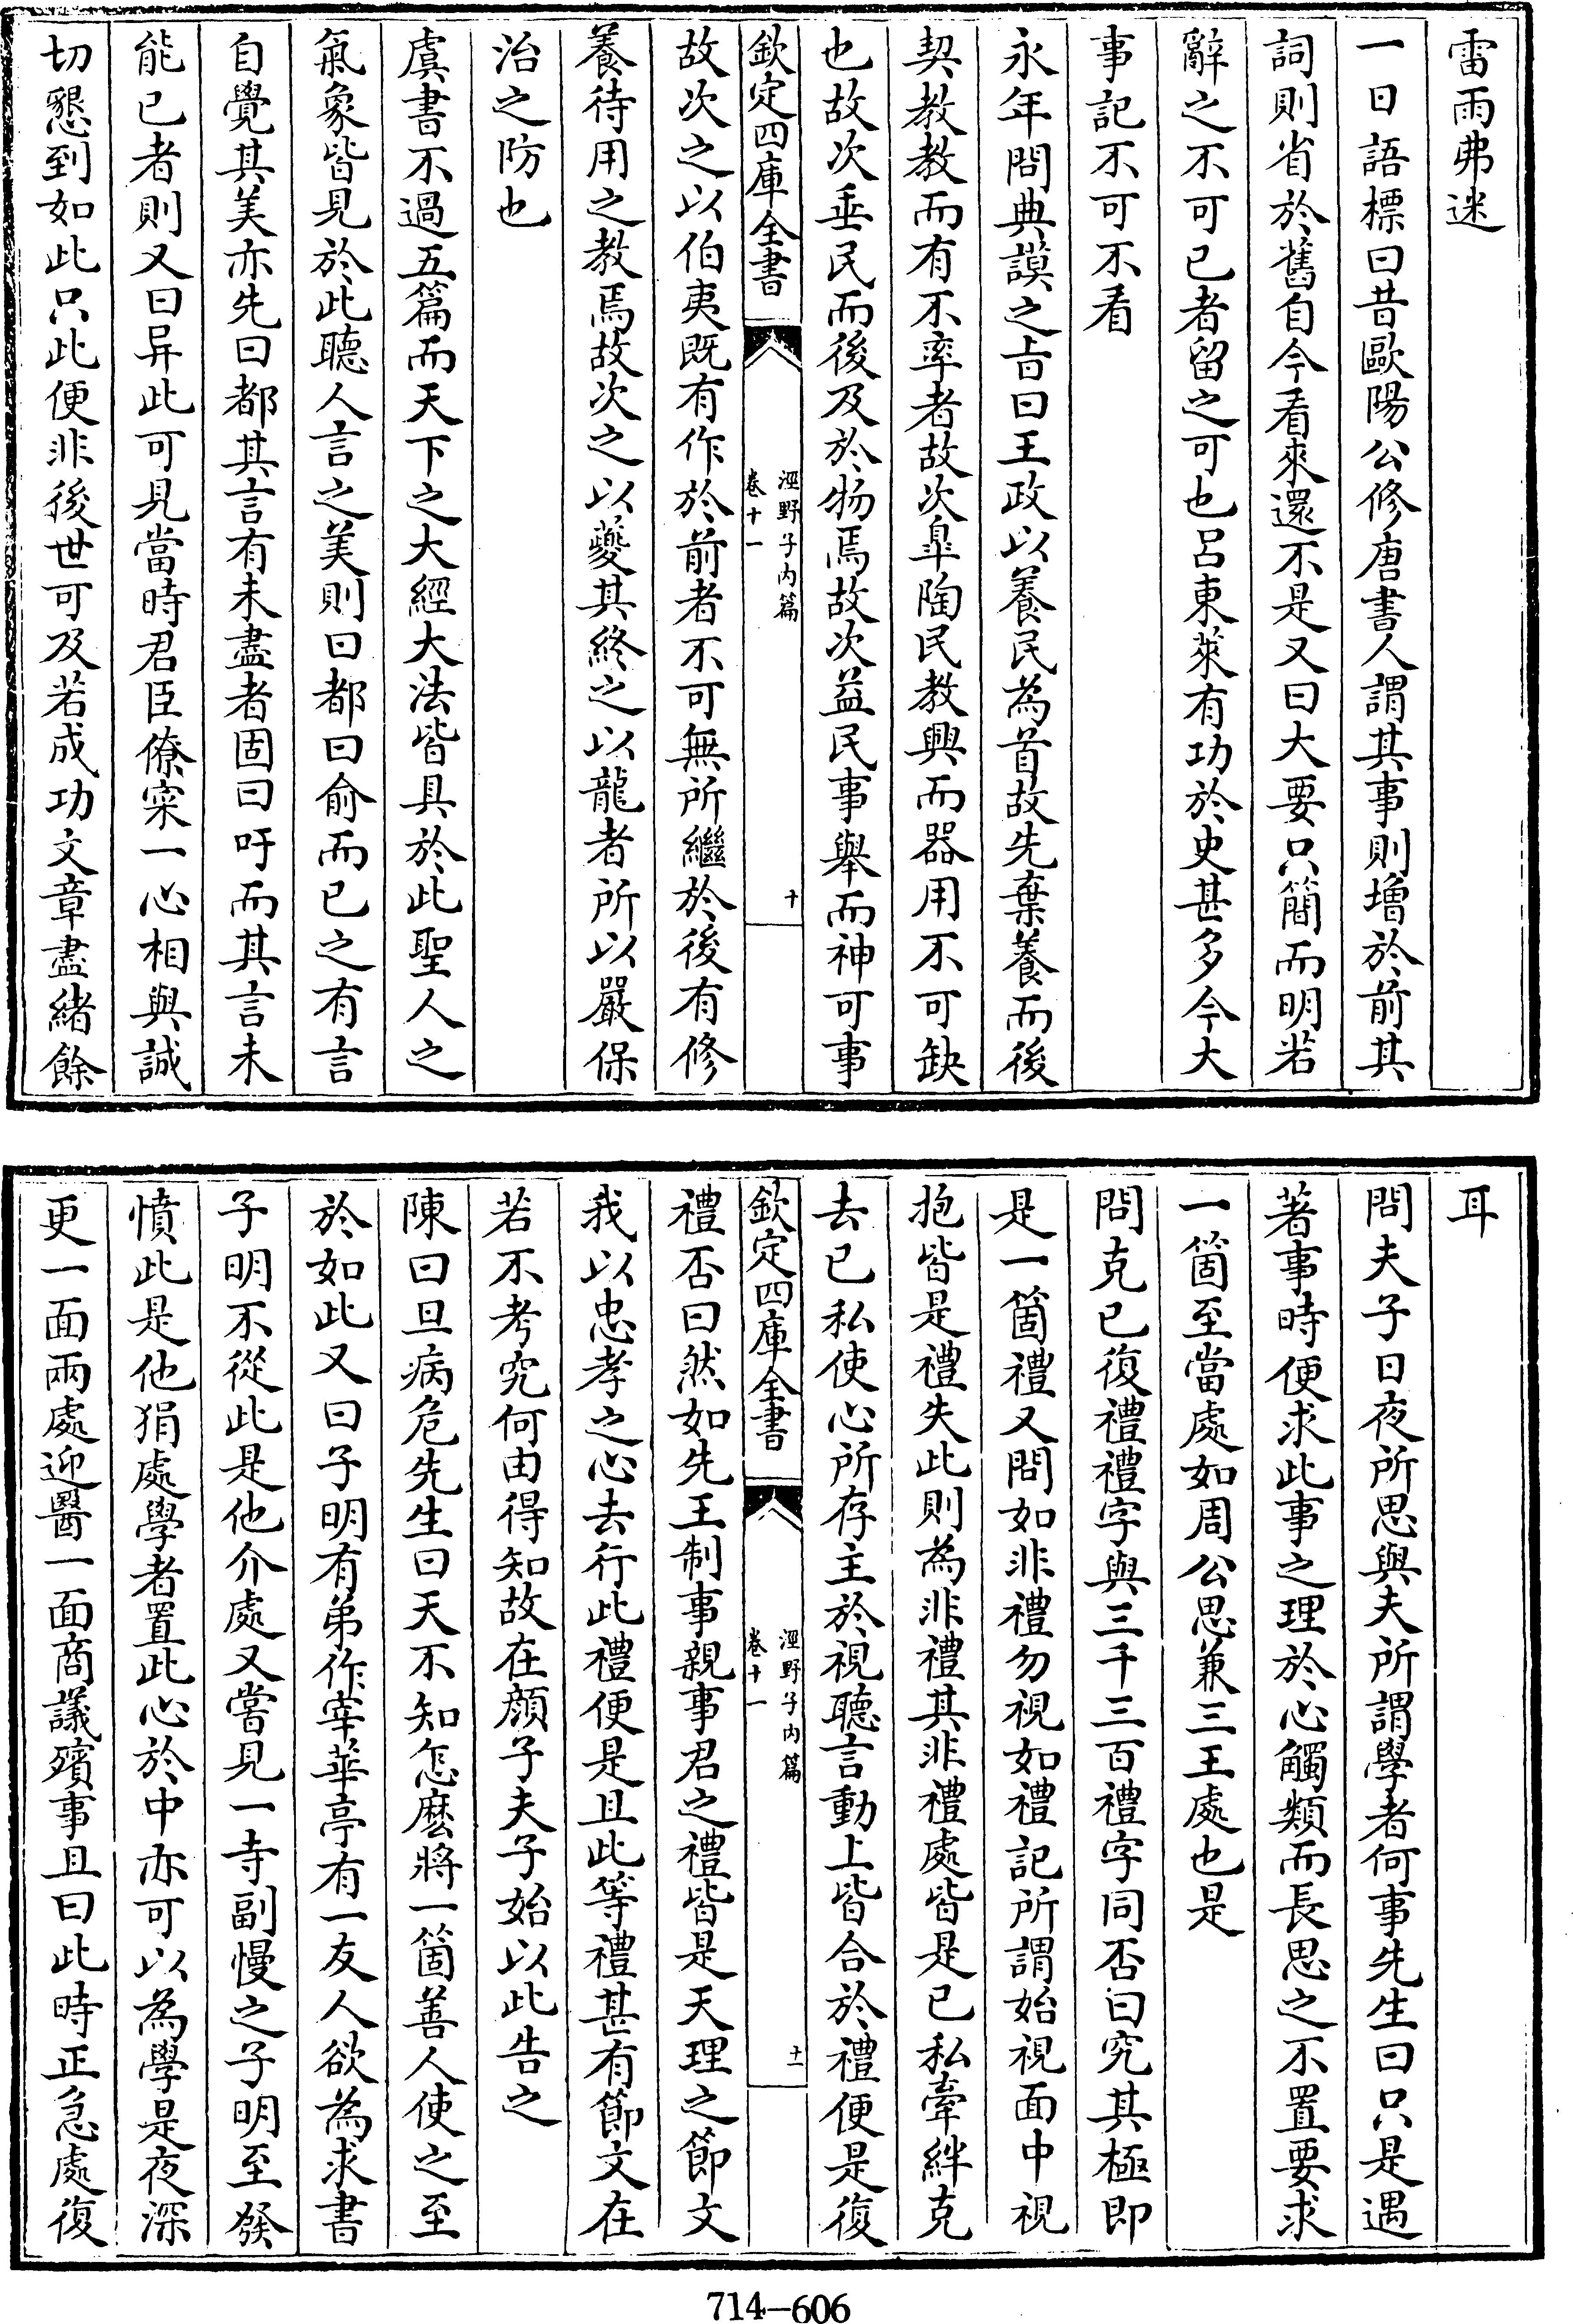 雷雨弗迷
一日語標曰昔歐陽公修唐書人謂其事則増於前其
詞則省於舊自今看來還不是又曰大要只簡而明若
辭之不可已者留之可也呂東萊有功於史甚多今大
事記不可不看
永年問典謨之㫖曰王政以養民為首故先棄養而後
契教教而有不率者故次臯陶民教興而器用不可缺
也故次垂民而後及於物焉故次益民事舉而神可事
欽定四庫全書
涇野子内篇
卷十一
十
故次之以伯夷既有作於前者不可無所繼於後有修
養待用之教焉故次之以夔其終之以龍者所以嚴保
治之防也
虞書不過五篇而天下之大經大法皆具於此聖人之
氣象皆見於此聽人言之美則曰都曰俞而已之有言
自覺其美亦先曰都其言有未盡者固曰吁而其言未
能已者則又曰异此可見當時君臣僚寀一心相與誠
切懇到如此只此便非後世可及若成功文章盡緒餘
耳
問夫子日夜所思與夫所謂學者何事先生曰只是遇
著事時便求此事之理於心觸類而長思之不置要求
一箇至當處如周公思兼三王處也是
問克已復禮禮字與三千三百禮字同否曰究其極即
是一箇禮又問如非禮勿視如禮記所謂始視面中視
抱皆是禮失此則為非禮其非禮處皆是已私牽絆克
去已私使心所存主於視聽言動上皆合於禮便是復
欽定四庫全書
涇野子内篇
卷十一
十一
禮否曰然如先王制事親事君之禮皆是天理之節文
我以忠孝之心去行此禮便是且此等禮甚有節文在
若不考究何由得知故在顔子夫子始以此告之
陳曰旦病危先生曰天不知怎麽將一箇善人使之至
於如此又曰子明有弟作宰華亭有一友人欲為求書
子明不從此是他介處又嘗見一寺副慢之子明至發
憤此是他狷處學者置此心於中亦可以為學是夜深
更一面兩處迎醫一面商議殯事且曰此時正急處復
714—606